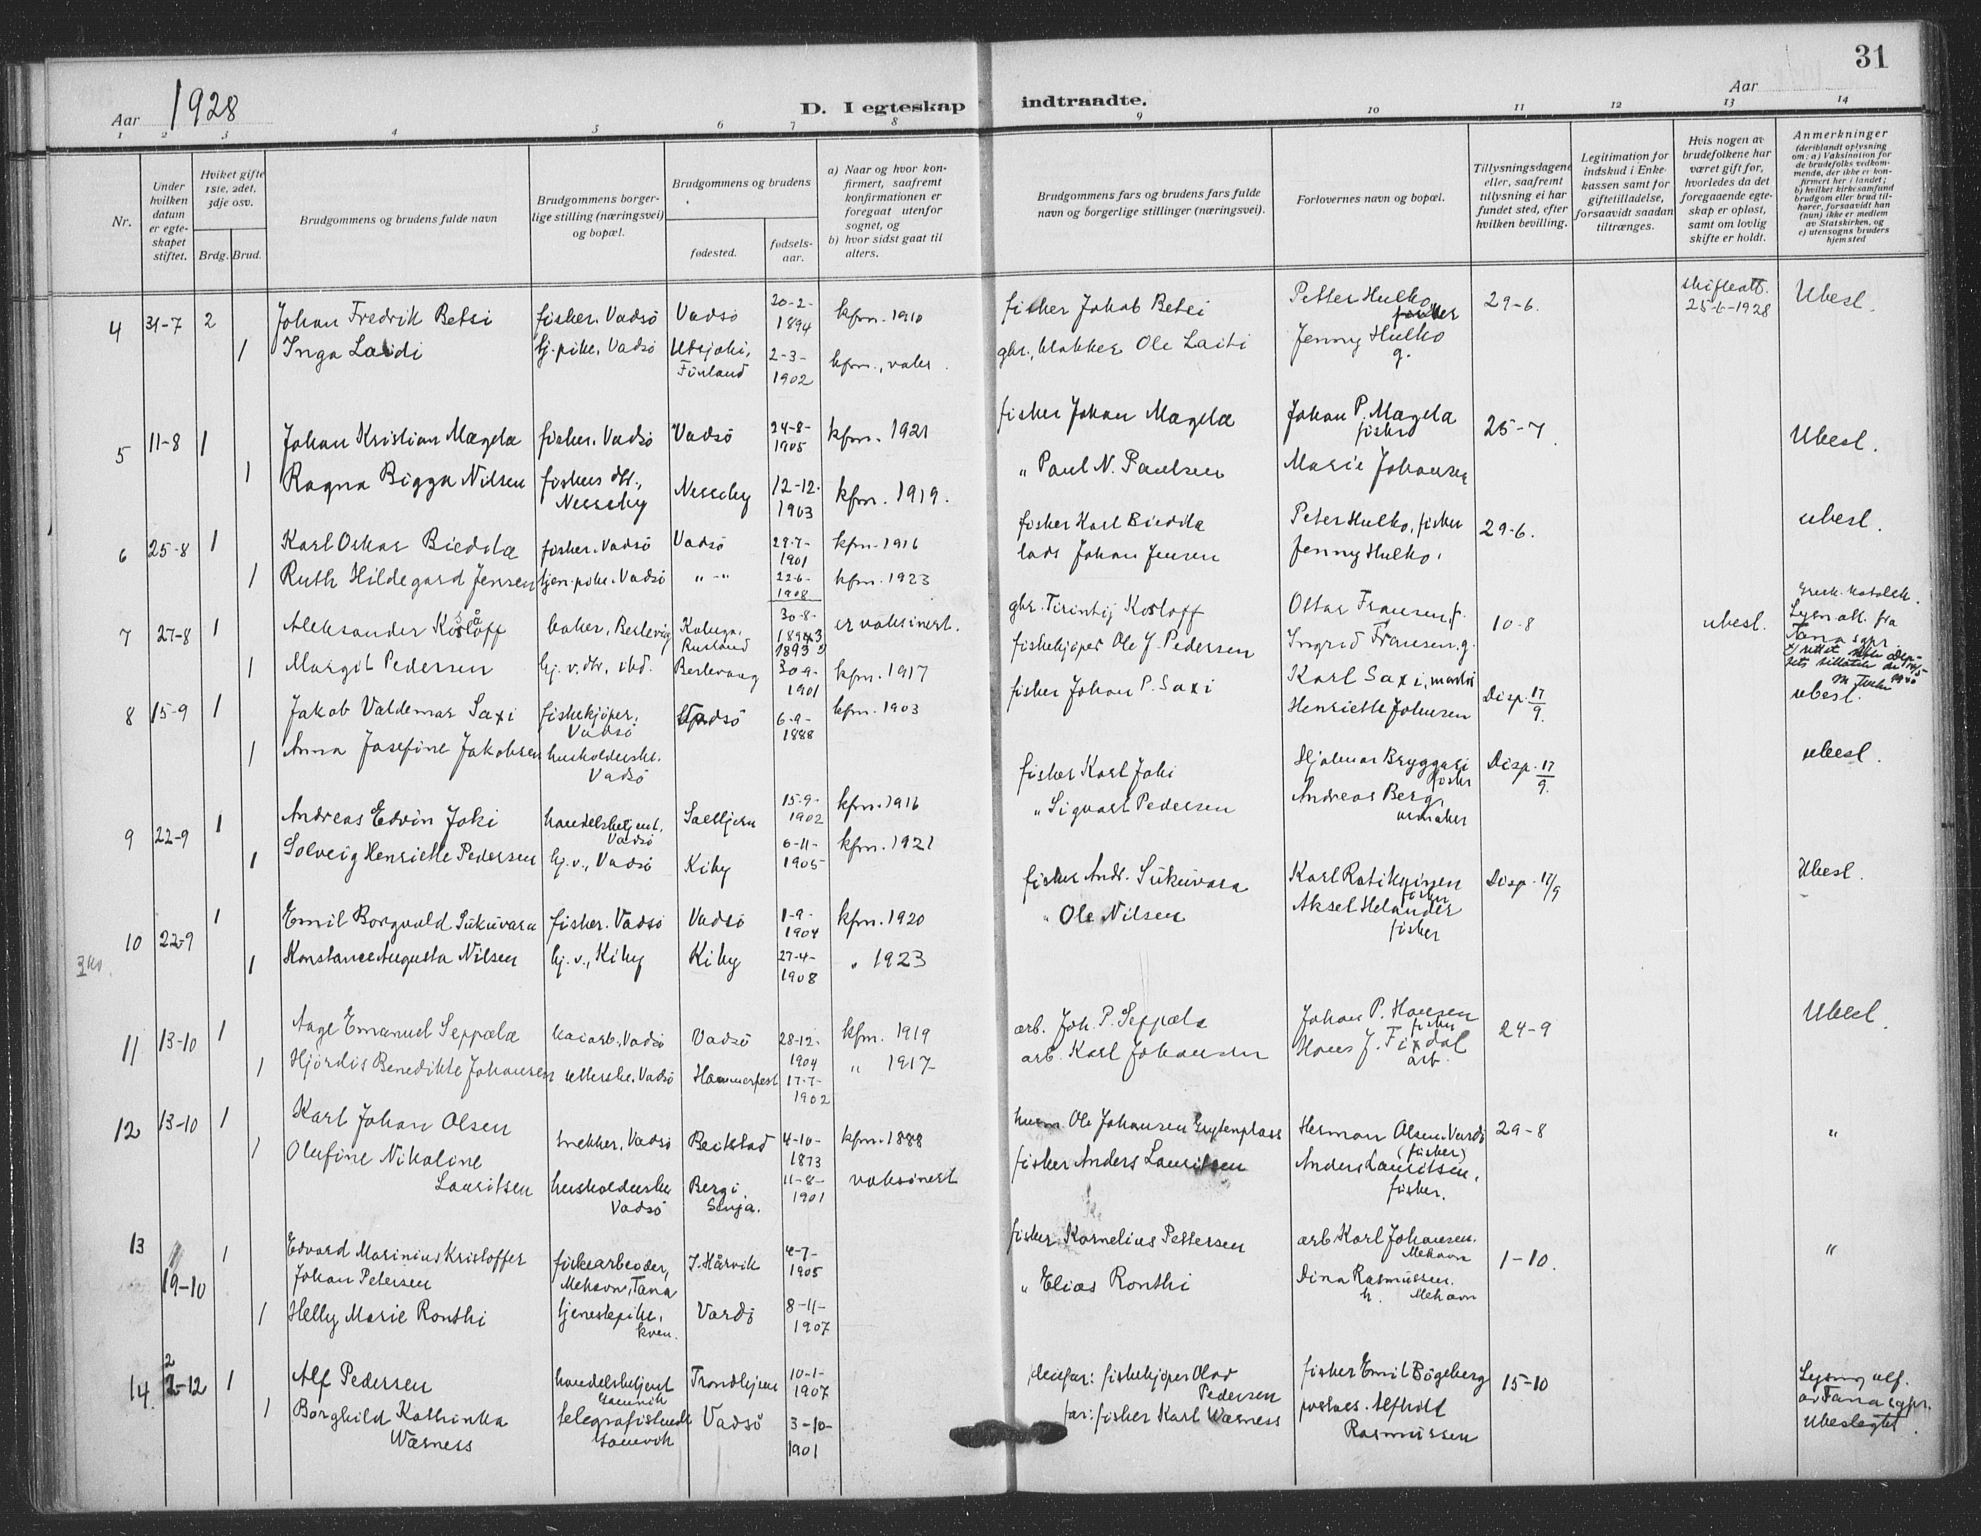 31
Aar 1928
D. I egteskap indtraadte.
Aar
1 2 3 4 5 6 7 8 9 10 11 12 13 14
Nr.
Under hvilken datum er egteskapet stiftet.
Hvilket gifte 1ste, 2det, 3dje osv.
Brdg. Brud.
Brudgommens og brudens fulde navn
Brudgommens borgerlige stilling (næringsvei) og bopæl.
Brudgommens og brudens
fødested.
fødselsaar.
a) Naar og hvor konfirmert, saafremt konfirmationen er foregaat utenfor sognet, og
b) hvor sidst gaat til alters.
Brudgommens fars og brudens fars fulde navn og borgerlige stillinger (næringsvei).
Forlovernes navn og bopæl.
Tillysningsdagene eller, saafremt tillysning ei har fundet sted, efter hvilken bevilling.
Legitimation for indskud i Enkekassen samt for giftetilladelse, forsaavidt saadan tiltrænges.
Hvis nogen av brudefolkene har været gift før, hvorledes da det foregaaende egteskap er opløst, samt om lovlig skifte er holdt.
Anmerkninger (deriblandt oplysning om: a) Vaksination for de brudefolks vedkommende, der ikke er konfirmert her i landet; b) hvilket kirkesamfund brudgom eller brud tilhører, forsaavidt han (hun) ikke er medlem av Statskirken, og c) utensogns bruders hjemsted
4 31-7 2 Johan Fredrik Betsi fisker, Vadsö Vadsö 20-2-1894 kfm. 1910 fisher Jakob Betsi Petter Hulko fisker 29-6. skifteatt. 25-6-1928 Ubesl.
1 Inga Laidi tj.pike, Vadsö Utsjoki, Finland 2-3-1902 kfm., vaks. gbr., klokker Ole Laiti Jenny Hulko g.
5 11-8 1 Johan Kristian Mægelæ fisker, Vadsö Vadsö 24-8-1905 kfm. 1921 fisker Johan Mægelæ Johan P. Mægelæ fisker 25-7. Ubesl.
1 Ragna Bigga Nilsen fiskers dtr., Nesseby Nesseby 12-12-1903 kfm. 1919. " Paul N. Paulsen Marie Johansen
6 25-8 1 Karl Oskar Biedilæ fisker, Vadsö Vadsö 29-7-1901 kfm. 1916 fisker Karl Biedilæ Peter Hulko, fisker 29-6. ubesl.
1 Ruth Hildegard Jensen tjen.pike, Vadsö " - " 22-6-1908 kfm. 1923 lods Johan Jensen Jenny Hulko.
7 27-8 1 Aleksander Kosloff baker, Berlevåg Kaluga, Russland 30-8-1893 er vaksinert. gbr. Tirintij Kosloff Ottar Fransen, f. 10-8 ubesl. Gresk. katolsk. Lysn.att. fra Tana sgpr.
1 Margit Pedersen hj.v. dtr., ibd. Berlevaag 30-9-1901 kfm. 1917 fiskekjöper Ole J. Pedersen Ingrid Fransen, g.
8 15-9 1 Jakob Valdemar Saxi fiskekjöper, Vadsö Vadsö 6-9-1888 kfm. 1903 fisker Johan P. Saxi Karl Saxi, Henriette Johnsen Disp. 17/9. ubesl.
1 Anna Josefine Jakobsen husholderske. Vadsö
9 22-9 1 Andreas Edvin Joki handelsbetjent, Vadsö 15-9-1902 kfm. 1916 fisker Karl Joki Hjalmar Bryggari fisker Disp. 17/9. ubesl.
1 Solveig Henriette Pedersen hj.v., Vadsö Kiby 6-11-1905 kfm. 1921 " Sigvart Pedersen Andreas Berg, urmaker
10 22-9 1 Emil Borgvald Sukuvara fisker, Vadsö Vadsö 1-9-1904 kfm. 1920 fisker Andr. Sukuvara Karl Ratikainen fisker Disp. 17/9 Ubesl.
1 Konstance Augusta Nilsen hj.v., Kiby Kiby 27-4-1908 " 1923 " Ole Nilsen Aksel Helander fisker
11 13-10 1 Aage Emanuel Seppælæ kaiarb., Vadsö Vadsö 28-12-1904 kfm. 1919 arb. Joh. P. Seppælæ Johan P. Hansen fisker 24-9 Ubesl.
1 Hjördis Benedikte Johansen Vadsö Hammerfest 17-7-1902 " 1917- arb. Karl Johansen Hans J. Fixdal arb.
12 13-10 1 Karl Johan Olsen snekker, Vadsö Beitstad 4-10-1873 kfm. 1888 husm. Ole Johansen Grytenplass Herman Olsen, Vardö (fisker) 29-8 "
1 Olufine Nikoline Lauritsen husholderske Vadsö Berg i Senja. 11-8-1901 vaksinert fisker Anders Lauritsen Anders Lauritsen, fisker.
13 19-10 1 Edvard Marinius Kristoffer Johan Petersen fiskearbeider, Mehavn, Tana 4-7-1905 fisker Kornelius Pettersen arb. Karl Johansen. Mehavn 1-10. "
1 Helly Marie Ronthi tjenestepike, kven. Vardö 8-11-1907 " Elias Ronthi Dina Rasmussen. h. Mehavn
14 2-12 1 Alf Pedersen handelsbetjent Gamvik Trondhjem 10-1-1907 pleiefar: fiskekjöper Olav Pedersen fisker Emil Bögeberg 15-10 Lysning. att. av Tana sgpr. Ubeslegtet
1 Borghild Kathinka Wærness telegrafistinde Gamvik Vadsö 3-10-1901 far: fisker Karl Wærness Alfhild Rasmussen